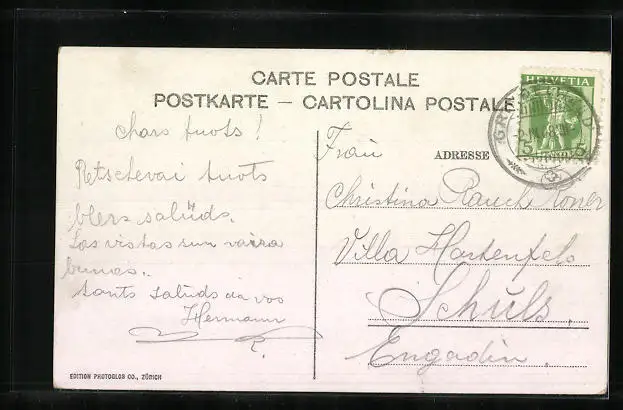 CARTE POSTALE
POSTKARTE – CARTOLINA POSTALE
HELVETIA
5 5
chars tuots!
Retschevai tuots
blers salüds.
Las vistas sun vaira
bunas..
tants salüds da vos
Hermann
R.
ADRESSE
Frau
Christina Rauch
Villa Hortenfels
Schuls.
Engadin.
EDITION PHOTOGLOB CO., ZÜRICH